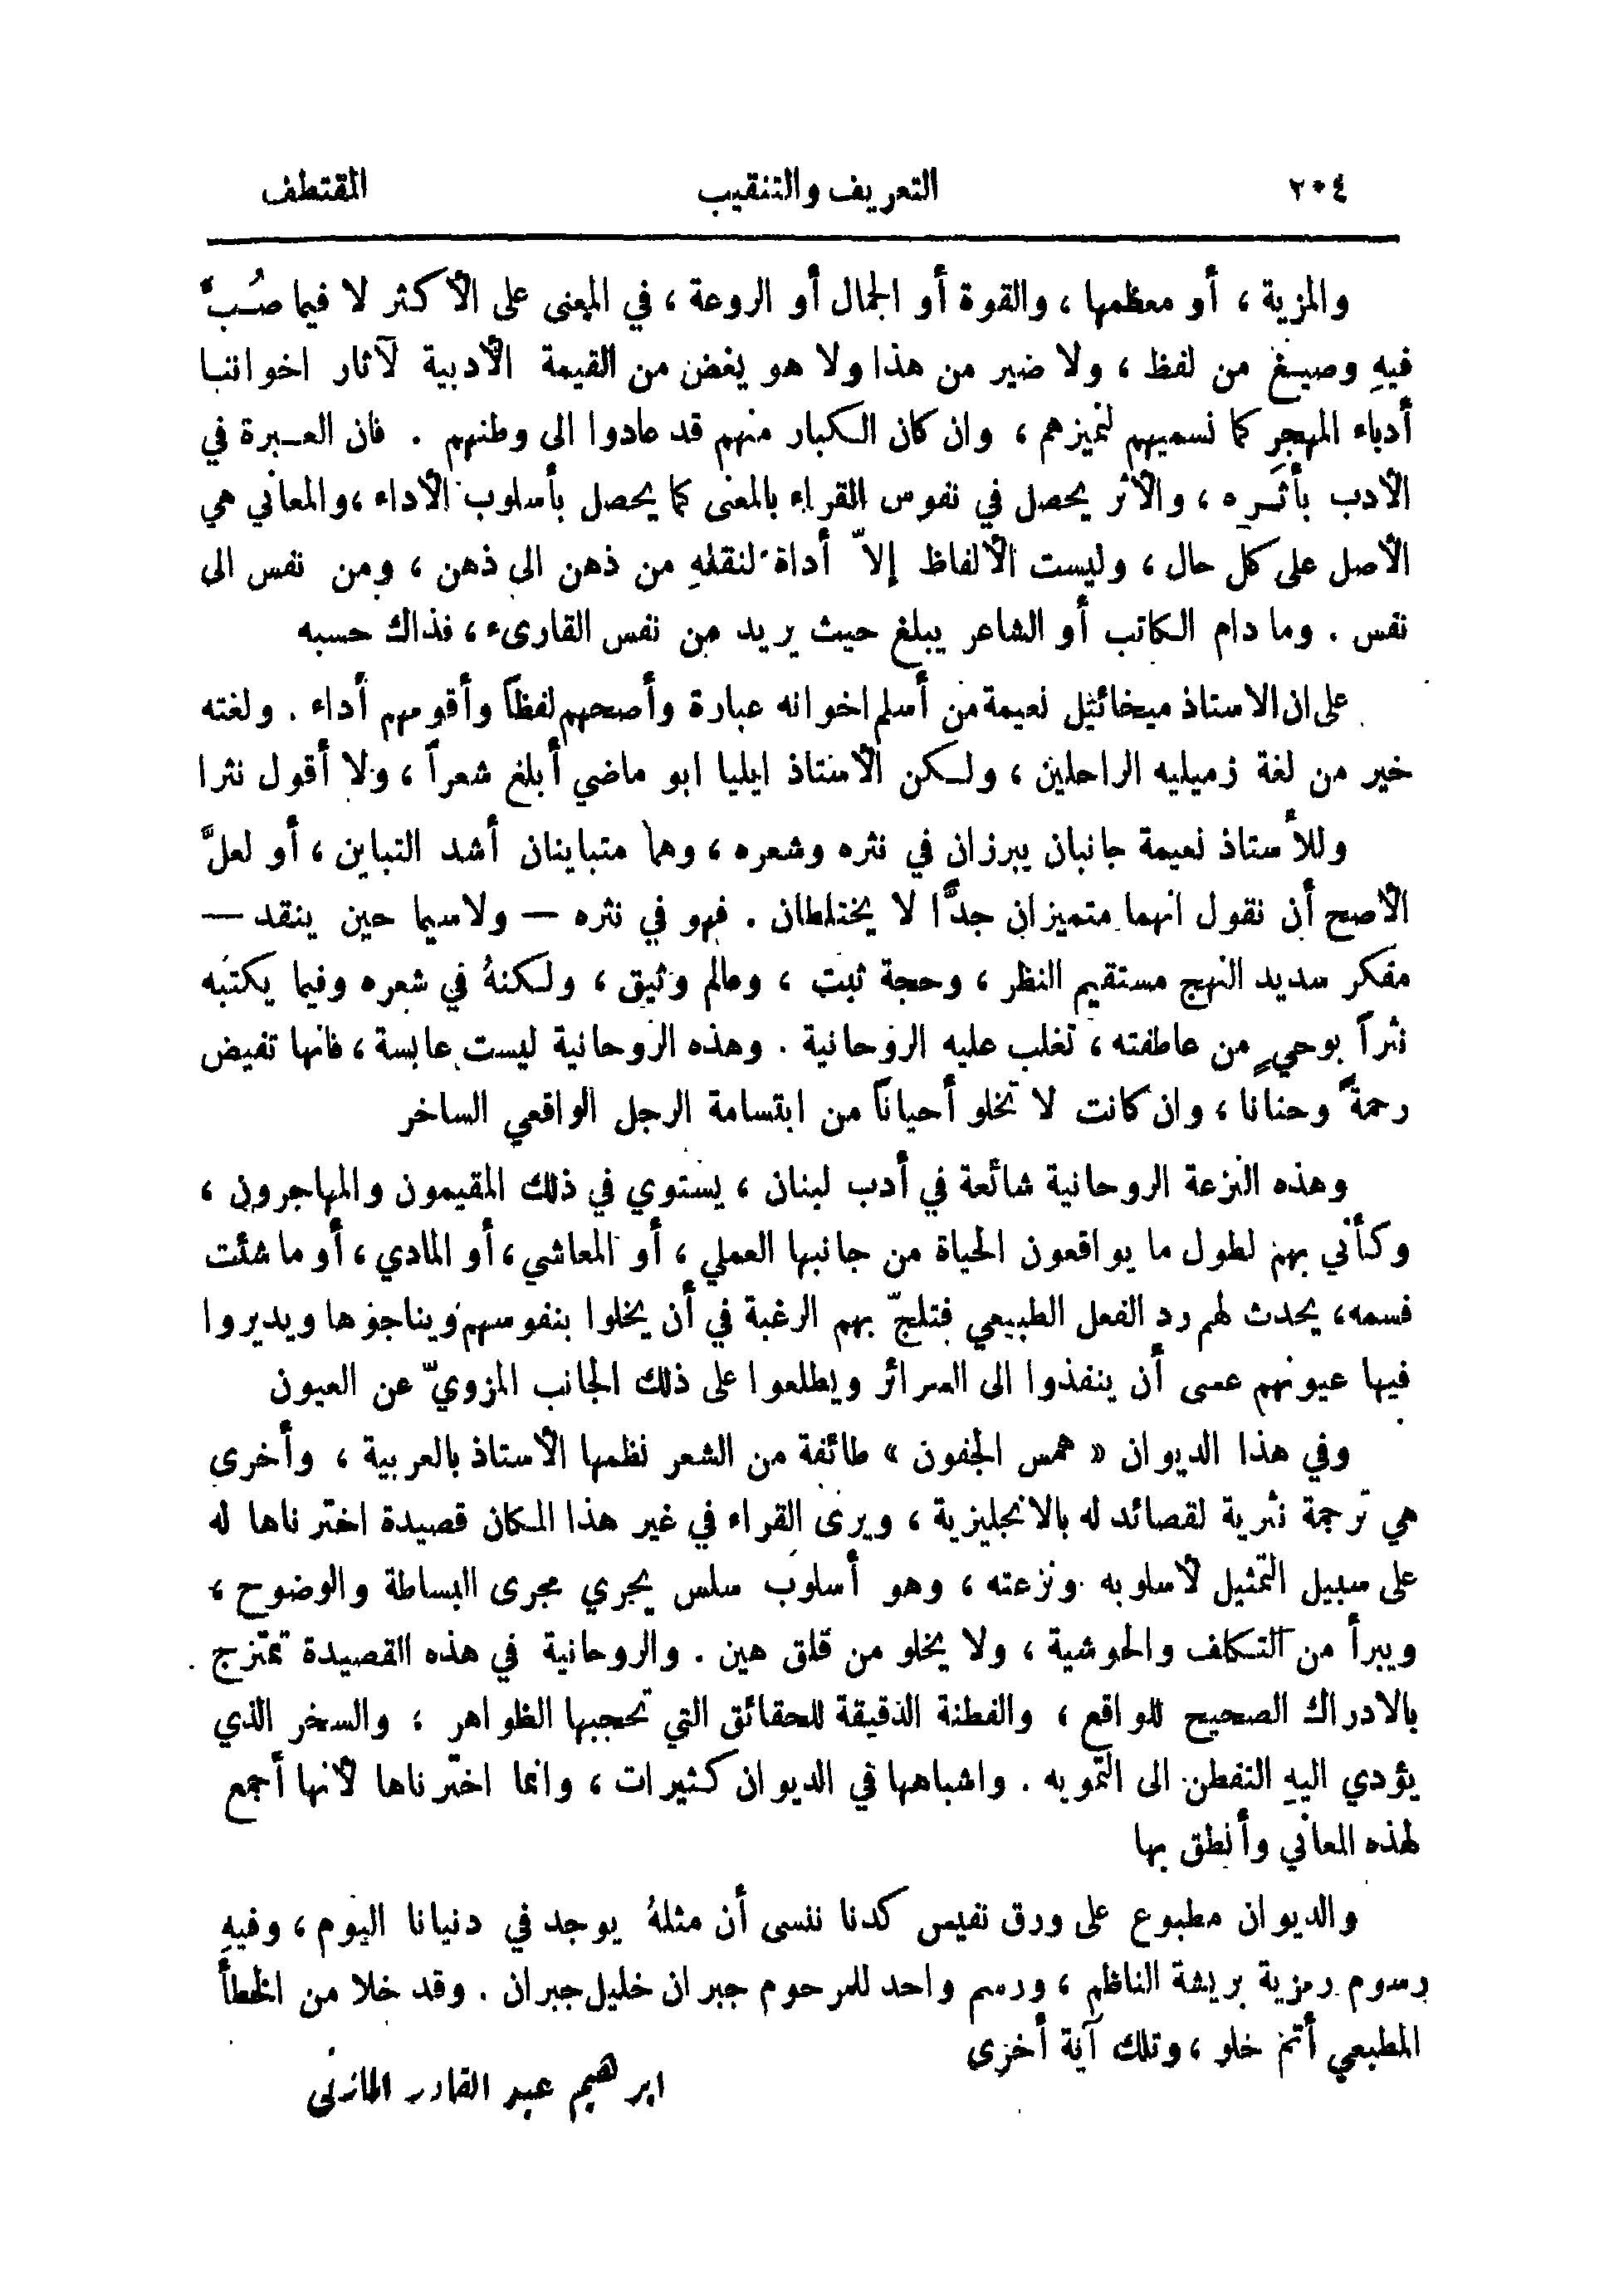 ٢٠٤ التعريف والتنقيب المقتطف
والمزية ، أو معظمها ، والقوة أو الجمال أو الروعة ، في المعنى على الأكثر لا فيما صُبَّ
فيهِ وصيغ من لفظ ، ولا ضير من هذا ولا هو يغض من القيمة الأدبية لآثار اخواننا
أدباء المهجرِ كما نسميهم لنميزهم ، وان كان الكبار منهم قد عادوا الى وطنهم . فان العبرة في
الأدب بأثره ، والأثر يحصل في نفوس القراء بالمعنى كما يحصل بأسلوب الأداء ، والمعاني هي
الأصل على كل حال ، وليست الألفاظ إلاّ أداة لنقلهِ من ذهن الى ذهن ، ومن نفس الى
نفس . وما دام الكاتب أو الشاعر يبلغ حيث يريد من نفس القارىء ، فذاك حسبه
على ان الاستاذ ميخائيل نعيمة من أسلم اخوانه عبارة وأصحهم لفظاً وأقومهم أداء . ولغته
خير من لغة زميليه الراحلين ، ولكن الأستاذ ايليا ابو ماضي أبلغ شعراً ، ولا أقول نثرا
وللأستاذ نعيمة جانبان يبرزان في نثره وشعره ، وهما متباينان أشد التباين ، أو لعلَّ
الأصح أن نقول انهما متميزان جدًّا لا يختلطان . فهو في نثره — ولاسيما حين ينقد —
مفكر سديد النهج مستقيم النظر ، وحجة ثبت ، وعالم وثيق ، ولكنهُ في شعره وفيما يكتبه
نثراً بوحيٍ من عاطفته ، تغلب عليه الروحانية . وهذه الروحانية ليست عابسة ، فانها تفيض
رحمةً وحنانا ، وان كانت لا تخلو أحياناً من ابتسامة الرجل الواقعي الساخر
وهذه النزعة الروحانية شائعة في أدب لبنان ، يستوي في ذلك المقيمون والمهاجرون ،
وكأني بهم لطول ما يواقعون الحياة من جانبها العملي ، أو المعاشي ، أو المادي ، أو ما شئت
فسمه ، يحدث لهم رد الفعل الطبيعي فتلجّ بهم الرغبة في أن يخلوا بنفوسهم ويناجوها ويديروا
فيها عيونهم عسى أن ينفذوا الى السرائر ويطلعوا على ذلك الجانب المزويّ عن العيون
وفي هذا الديوان « همس الجفون » طائفة من الشعر نظمها الأستاذ بالعربية ، وأخرى
هي ترجمة نثرية لقصائد له بالانجليزية ، ويرى القراء في غير هذا المكان قصيدة اخترناها له
على سبيل التمثيل لأسلوبه ونزعته ، وهو أسلوب سلس يجري مجرى البساطة والوضوح ،
ويبرأ من التكلف والحوشية ، ولا يخلو من قلق هين . والروحانية في هذه القصيدة تمتزج
بالادراك الصحيح للواقع ، والفطنة الدقيقة للحقائق التي تحجبها الظواهر ؛ والسخر الذي
يؤدي اليهِ التفطن الى التمويه . واشباهها في الديوان كثيرات ، وانما اخترناها لأنها أجمع
لهذه المعاني وأنطق بها
والديوان مطبوع على ورق نفيس كدنا ننسى أن مثلهُ يوجد في دنيانا اليوم ، وفيهِ
رسوم رمزية بريشة الناظم ، ورسم واحد للمرحوم جبران خليل جبران . وقد خلا من الخطأ
المطبعي أتم خلو ، وتلك آية أخرى
ابرهيم عبد القادر المازني